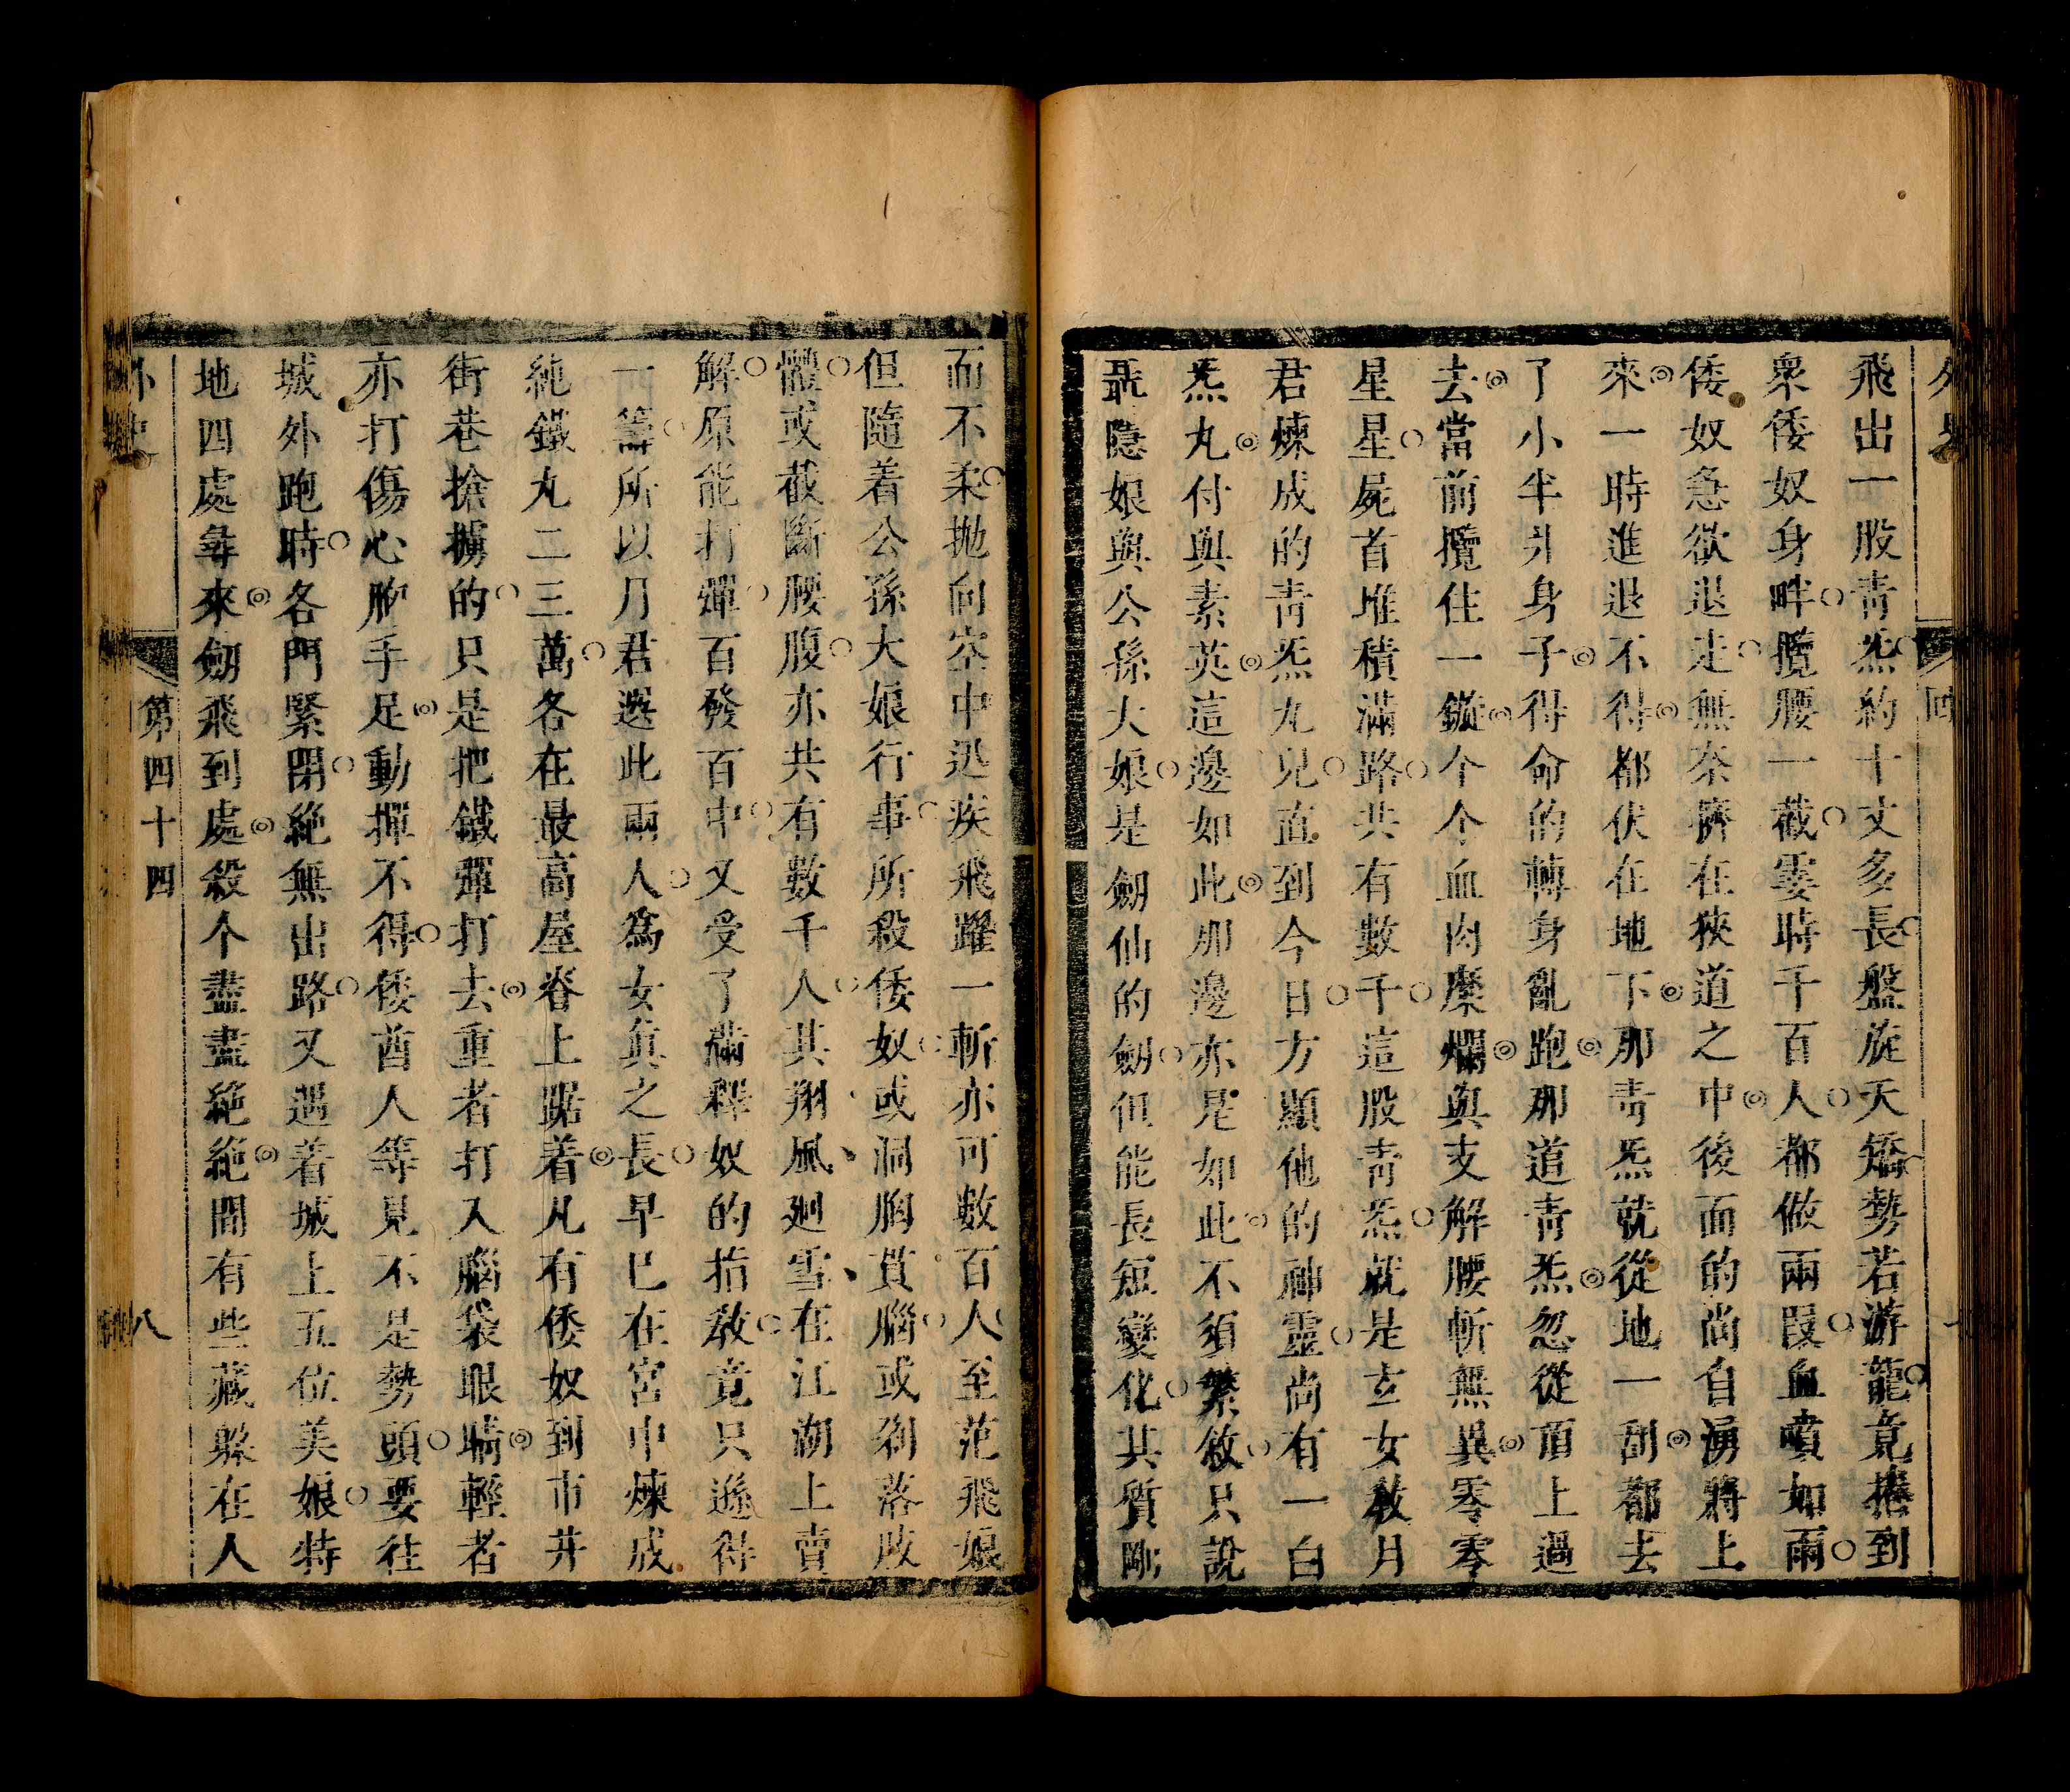 飛出一股青炁約十丈多長盤旋夭矯勢若游龍竟捲到
衆倭奴身畔攬腰一截霎時千百人都做兩段血噴如雨
倭奴急欲退走無奈擠在狹道之中後面的尚自湧將上
來一時進退不得都伏在地下那青炁就從地一刮都去
了小半爿身子得命的轉身亂跑那道青炁忽從頂上過
去當前攬住一鏇个个血肉糜爛與支解腰斬無異零零
星星屍首堆積滿路共有數千這股青炁就是玄女教月
君煉成的青炁丸兒直到今日方顯他的神靈尚有一白
炁丸付與素英這邊如此那邊亦是如此不須繁敘只說
聶隱娘與公孫大娘是劒仙的劒但能長短變化其質剛
而不柔拋向空中迅疾飛躍一斬亦可數百人至范飛娘
但隨着公孫大娘行事所殺倭奴或洞胸貫腦或剁落肢
體或截斷腰腹亦共有數千人其翔風廻雪在江湖上賣
解原能打彈百發百中又受了滿釋奴的指教竟只遜得
一籌所以月君選此兩人爲女眞之長早已在宮中煉成
純鐵丸二三萬各在最高屋脊上踞着凡有倭奴到市井
街巷搶擄的只是把鐵彈打去重者打入腦袋眼睛輕者
亦打傷心胸手足動撣不得倭酋人等見不是勢頭要往
城外跑時各門緊閉絶無出路又遇着城上五位美娘特
地四處尋來劒飛到處殺个盡盡絶絶間有些藏躱在人
外史
第四十四
八